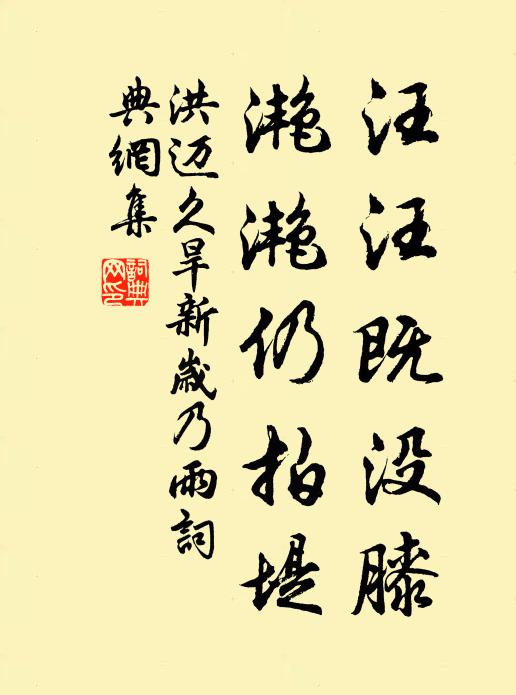 汪汪既没膝
滟滟仍拍堤
洪迈久旱新歲乃雨詞
典網集
詞典
网印